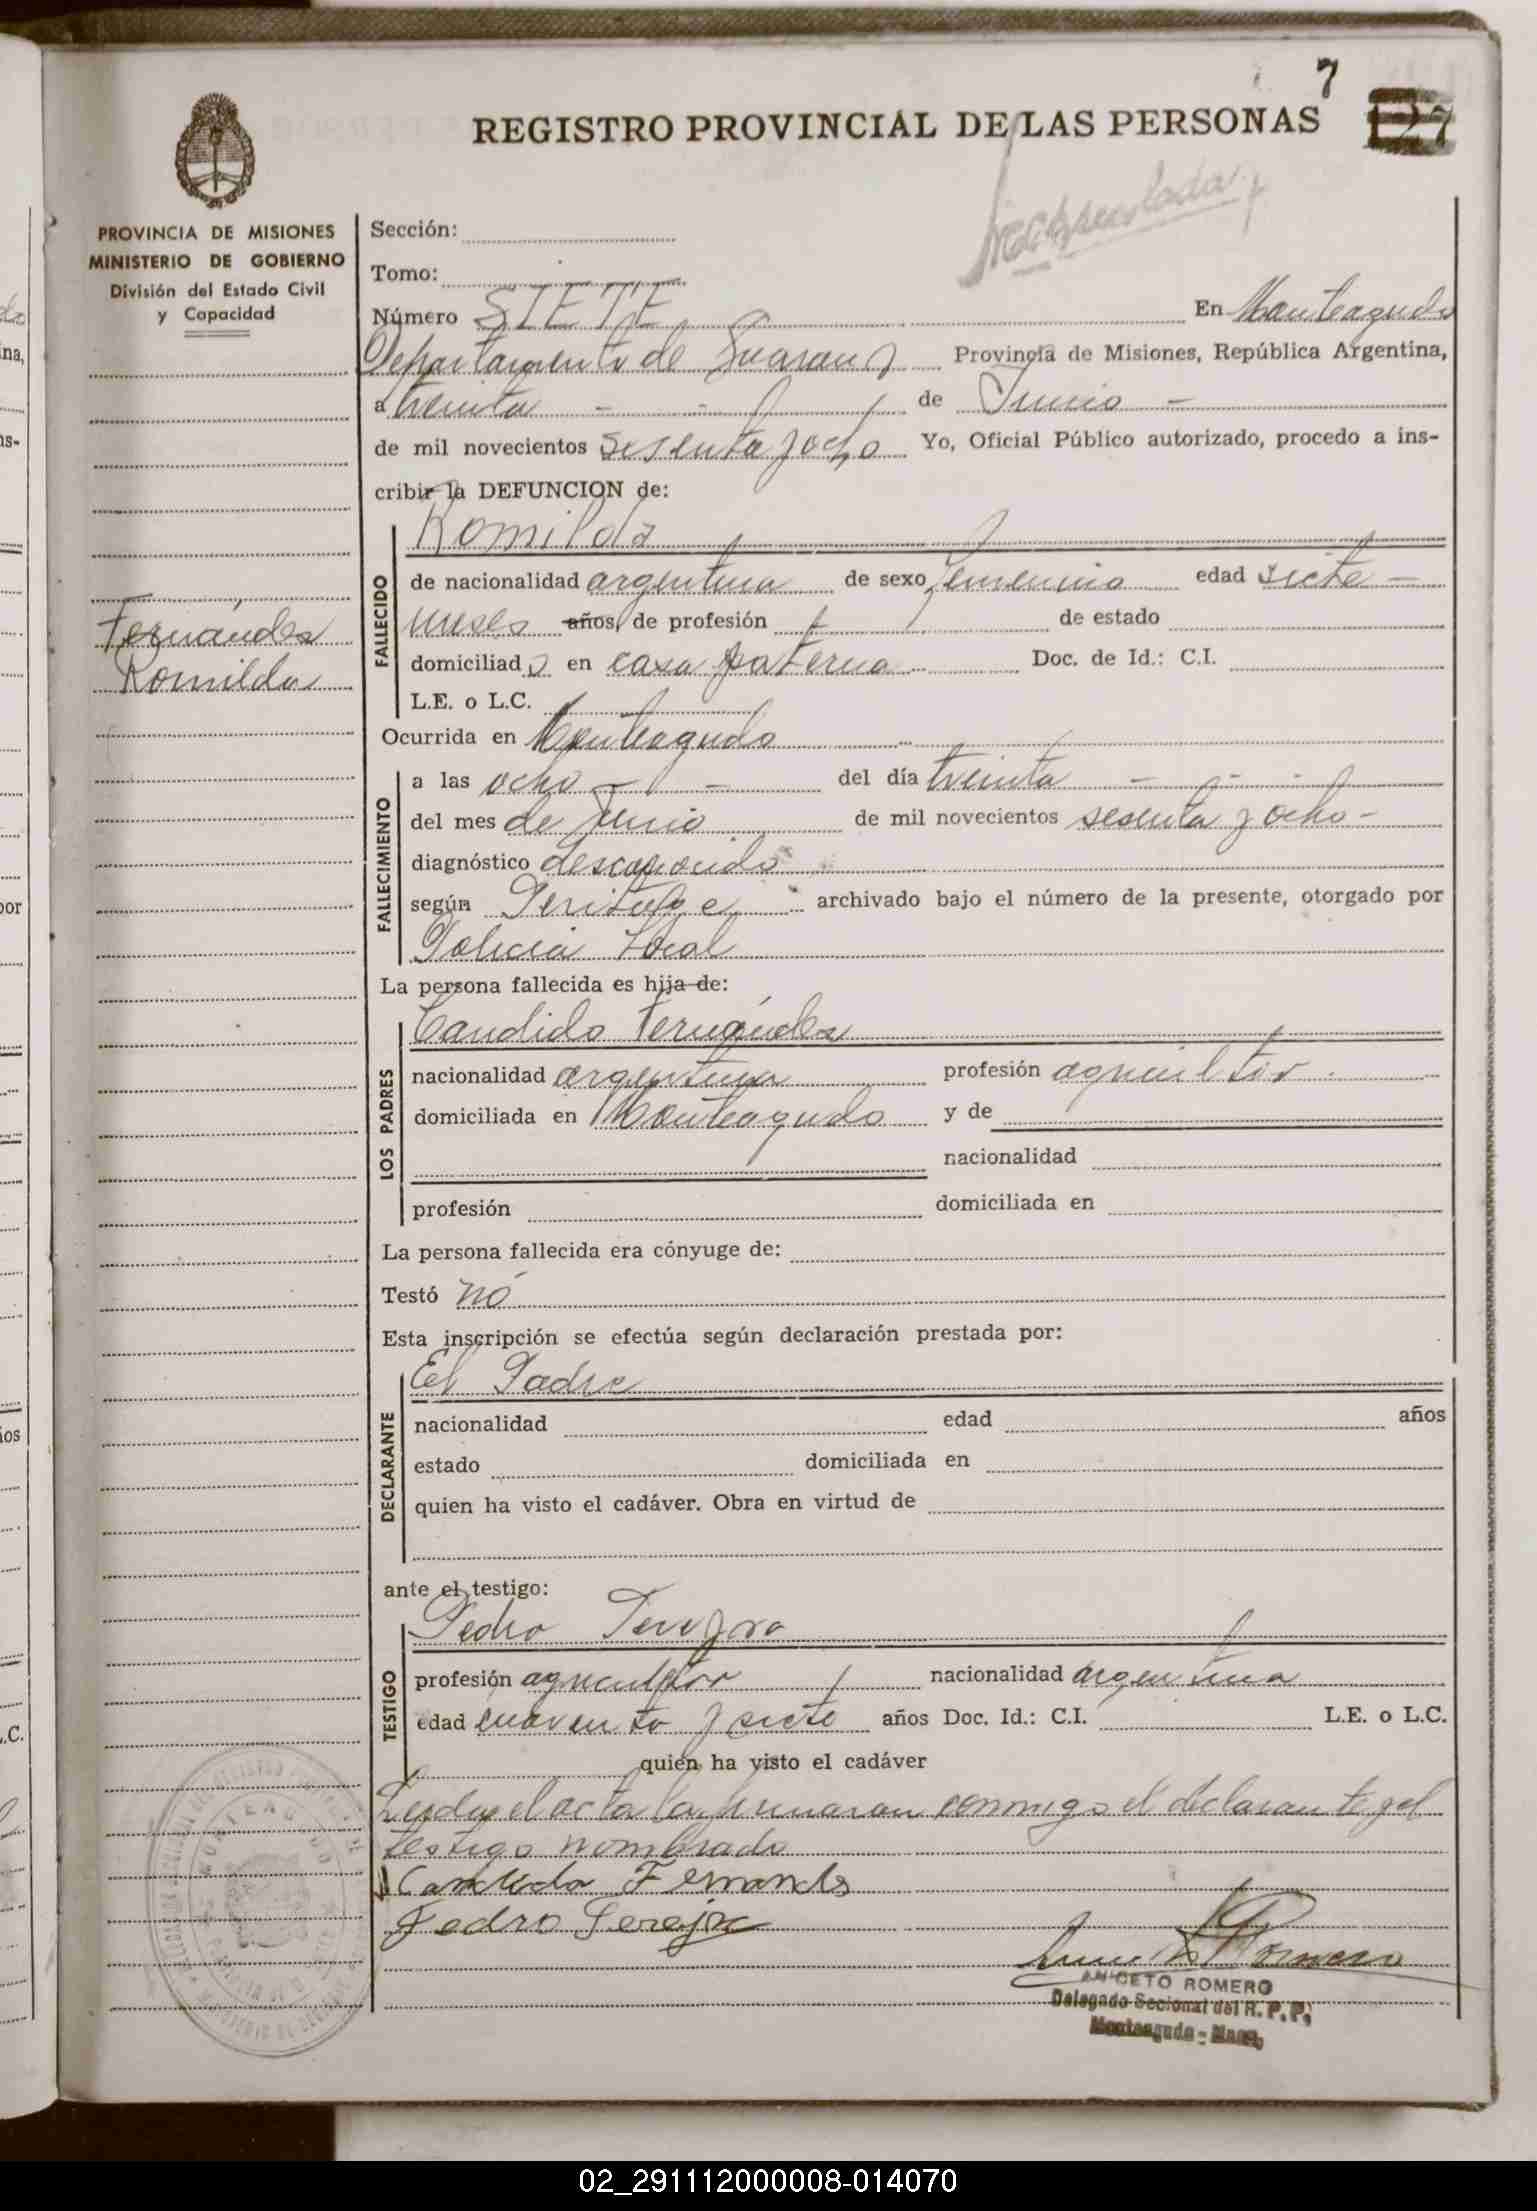 7
127
REGISTRO PROVINCIAL DE LAS PERSONAS
PROVINCIA DE MISIONES
MINISTERIO DE GOBIERNO
División del Estado Civil
y Capacidad
Fernández
Romilda
Sección:
Tomo:
Número SIETE En Monteagudo
Departamento de Guaraní Provincia de Misiones, República Argentina,
a treinta - - de Junio -
de mil novecientos sesenta y ocho Yo, Oficial Público autorizado, procedo a ins-
cribir la DEFUNCION de:
FALLECIDO
Romilda
de nacionalidad argentina de sexo femenino edad siete -
meses años, de profesión de estado
domiciliad o en casa paterna Doc. de Id.: C.I.
L.E. o L.C.
Ocurrida en Monteagudo
FALLECIMIENTO
a las ocho - - del día treinta - - -
del mes de Junio de mil novecientos sesenta y ocho -
diagnóstico desconocido
según Peritaje archivado bajo el número de la presente, otorgado por
Policia Local
La persona fallecida es hija de:
LOS PADRES
Candido Fernández
nacionalidad argentina profesión agricultor
domiciliada en Monteagudo y de
nacionalidad
profesión domiciliada en
La persona fallecida era cónyuge de:
Testó nó
Esta inscripción se efectúa según declaración prestada por:
DECLARANTE
El Padre
nacionalidad edad años
estado domiciliada en
quien ha visto el cadáver. Obra en virtud de
ante el testigo:
TESTIGO
Pedro Pereyra
profesión agricultor nacionalidad argentina
edad cuarenta y siete años Doc. Id.: C.I. L.E. o L.C.
quien ha visto el cadáver
Leida el acta la firmaron conmigo el declarante y el
testigo nombrado
Candido Fernandes
Pedro Pereira
ANICETO ROMERO
Delegado Seccional del R. P. P.
Monteagudo - Mnes.
02_291112000008-014070